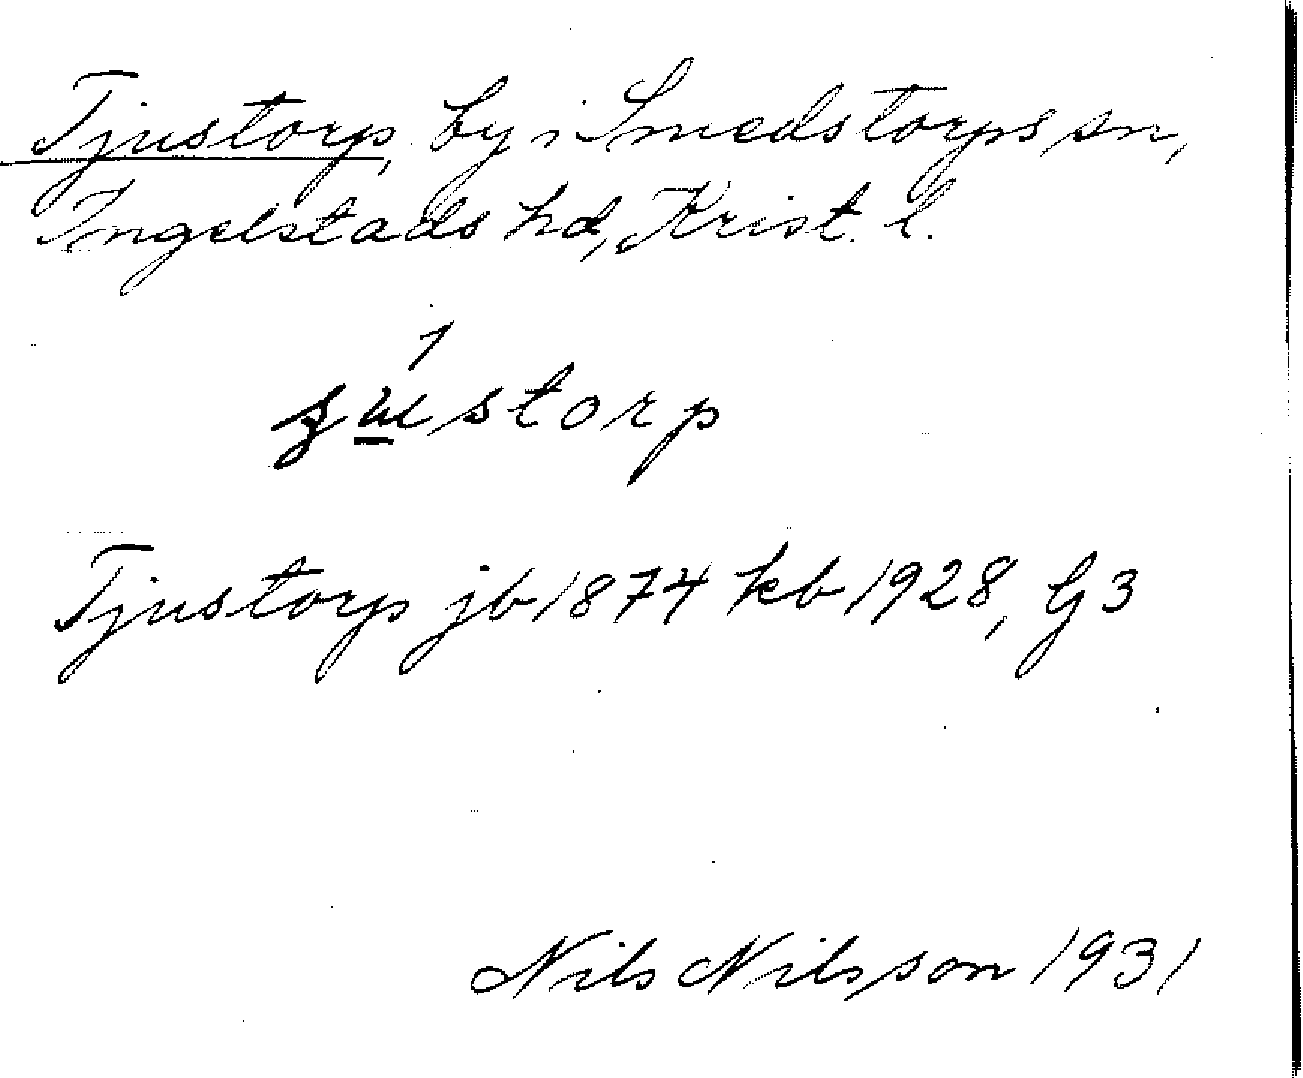 Tjustorp, by i Smedstorps sn,
Ingelstads hd, Krist. l.
Tjustorp jb 1874 kb 1928, G3
Nils Nilsson 1931